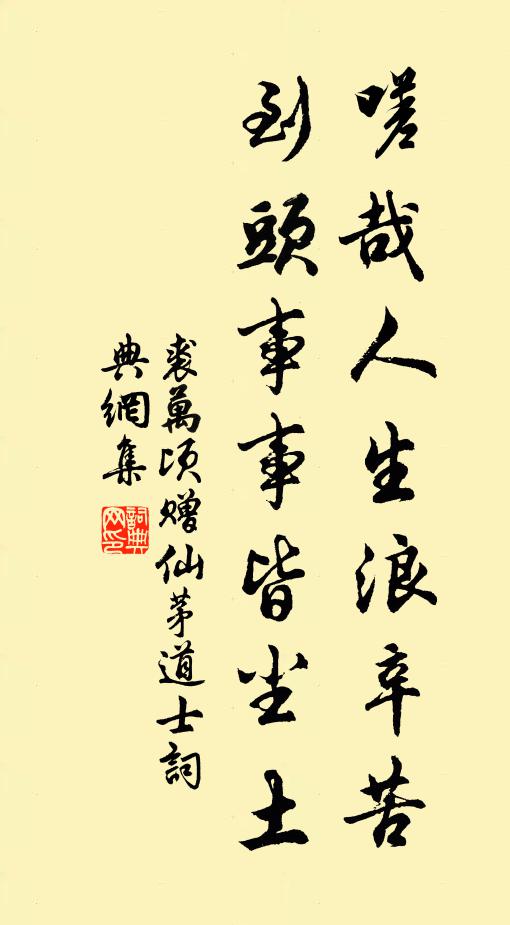 嗟哉人生浪辛苦
到頭事事皆尘土
裘萬頃赠仙茅道士詞
典網集
詞典
网印